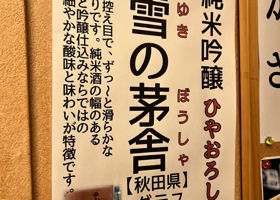 純米吟醸 ひやおろし
ゆき ぼうしゃ
雪の茅舎
【秋田県】
控え目で、ずっ〜と滑らかな
りです。純米酒の幅のある
と吟醸仕込みならではの
細やかな酸味と味わいが特徴です。
さ